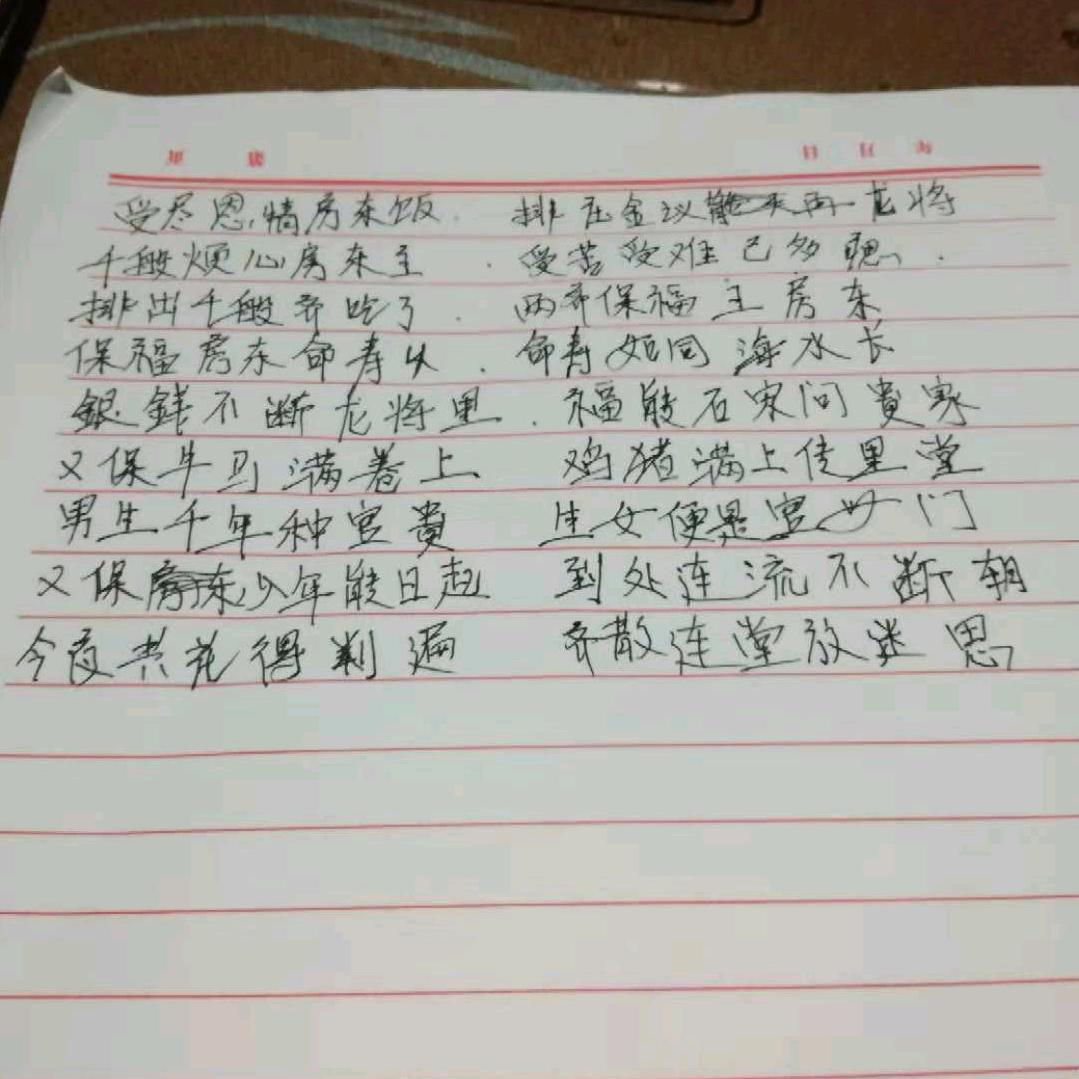 受尽恩情房东饭 排在金议龙将
千般烦心房东主 . 受苦受难已多
排出千般齐吃了 . 两齐保福主房东
保福房东命寿从 . 命寿如同海水长
銀錢不断龙将里 . 福能石宋问貴家
又保牛马满卷上 鸡猪满上传里堂
男生千年种官貴 生女便是官女门
又保房东少年能日起 到处连流不断朝
今夜共花得判遍 齐散连堂放迷恩